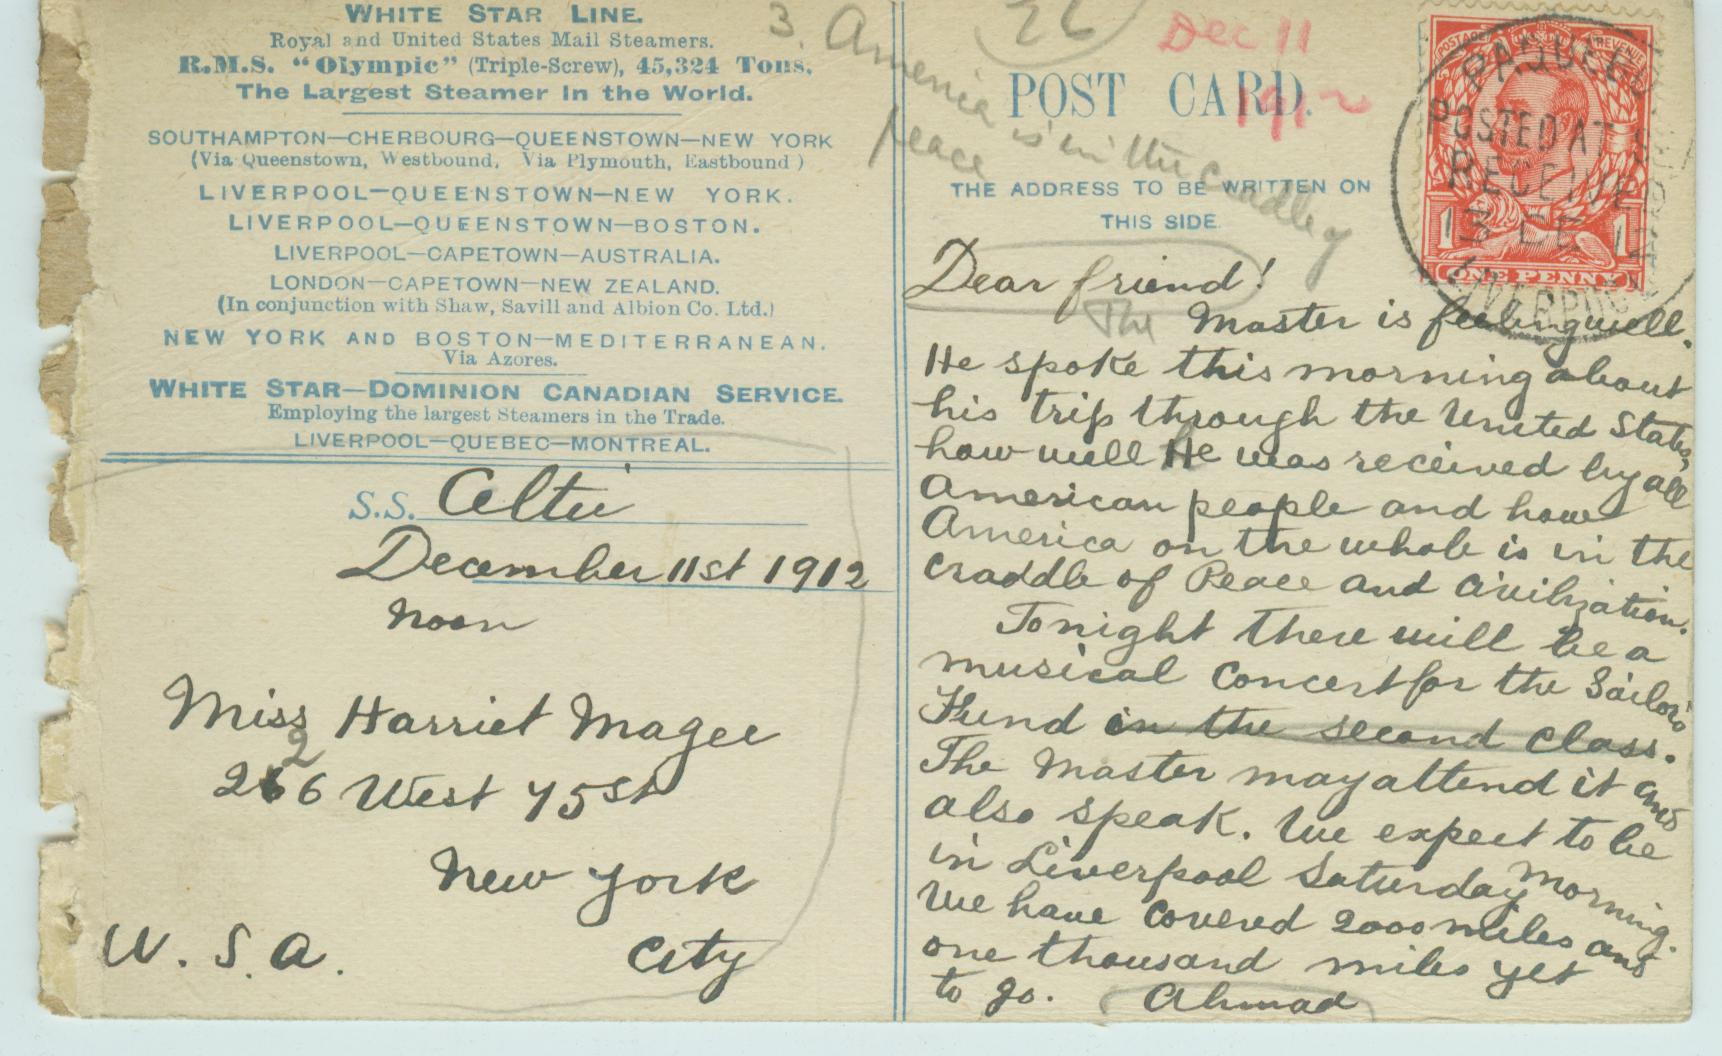 WHITE STAR LINE.
Royal and United States Mail Steamers.
R.M.S. "Olympic" (Triple-Screw), 45,324 Tons,
The Largest Steamer in the World.
SOUTHAMPTON—CHERBOURG—QUEENSTOWN—NEW YORK
(Via Queenstown, Westbound, Via Plymouth, Eastbound)
LIVERPOOL—QUEENSTOWN—NEW YORK.
LIVERPOOL—QUEENSTOWN—BOSTON.
LIVERPOOL—CAPETOWN—AUSTRALIA.
LONDON—CAPETOWN—NEW ZEALAND.
(In conjunction with Shaw, Savill and Albion Co. Ltd.)
NEW YORK AND BOSTON—MEDITERRANEAN.
Via Azores.
WHITE STAR—DOMINION CANADIAN SERVICE.
Employing the largest Steamers in the Trade.
LIVERPOOL—QUEBEC—MONTREAL.
S.S. Celtic
December 11st 1912
Noon
Miss Harriet Magee
266 West 75st
2
New York
City
U. S. A.
3. America is in the cradle of
peace
26
Dec 11
1912
POST CARD.
THE ADDRESS TO BE WRITTEN ON
THIS SIDE.
POSTAGE REVENUE
1 1
ONE PENNY
PAQUEBOT
POSTED AT SEA
RECEIVED
13 DE 12
LIVERPOOL
Dear friend!
The Master is feeling well.
He spoke this morning about
his trip through the United States,
how well He was received by all
American people and how
America on the whole is in the
craddle of Peace and Civilization.
Tonight there will be a
musical concert for the Sailors
Fund in the second class.
The Master may attend it and
also speak. We expect to be
in Liverpool Saturday Morning.
We have covered 2000 miles and
one thousand miles yet
to go. Ahmad